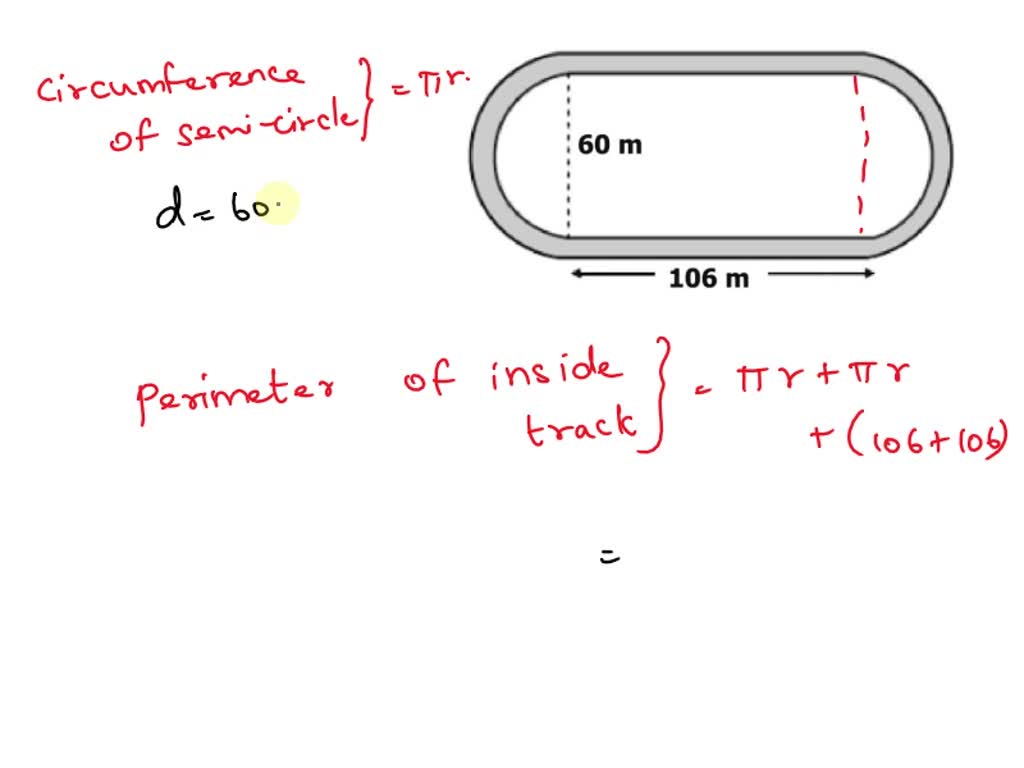 circumference
of semi-circle } = πr.
d = 60.
60 m
106 m
Perimeter of inside
track } = πr + πr
+ (106 + 106)
=